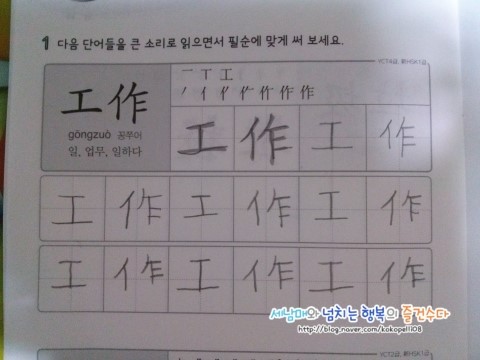 1 다음 단어들을 큰 소리로 읽으면서 필순에 맞게 써 보세요.
YCT4급, 新HSK1급
工作
gōngzuò 꽁쭈어
일, 업무, 일하다
一 丅 工
丿 亻 亻 仁 作 作 作
工 作 工 作
工 作 工 作 工 作
工 作 工 作 工 作
세남매와 넘치는 행복의 즐건수다
http://blog.naver.com/kokopelli08
YCT2급, 新HSK1급